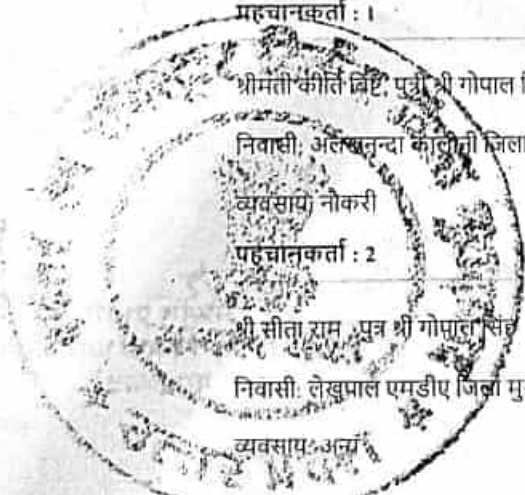 पहचानकर्ता : 1
श्रीमती कीर्ति बिष्ट, पुत्री श्री गोपाल
निवासी: अलखनन्दा कालोनी जिला
व्यवसाय: नौकरी
पहचानकर्ता : 2
श्री सीता राम , पुत्र श्री गोपाल सिंह
निवासी: लेखपाल एमडीए जिला
व्यवसाय: अन्य